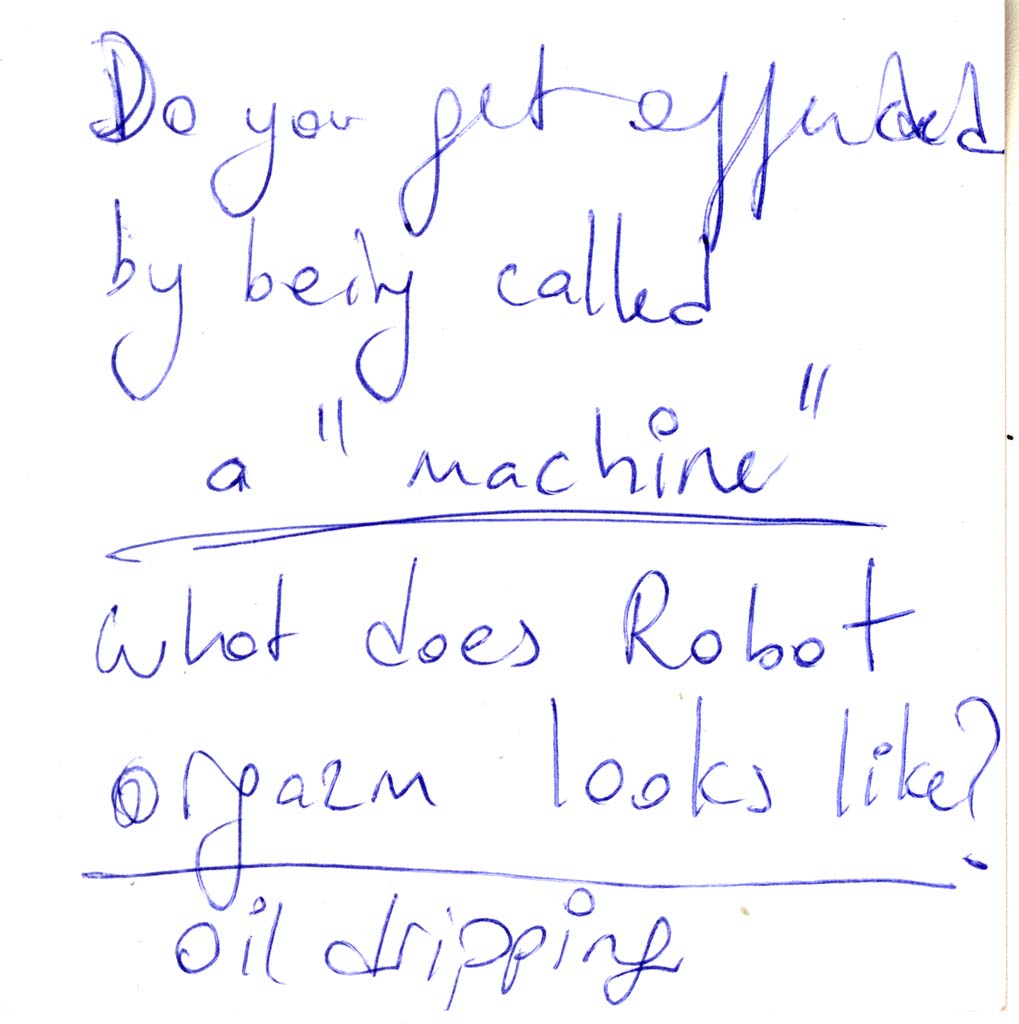 Do you get offended
by being called
a "machine"
What does Robot
orgazm looks like?
oil dripping